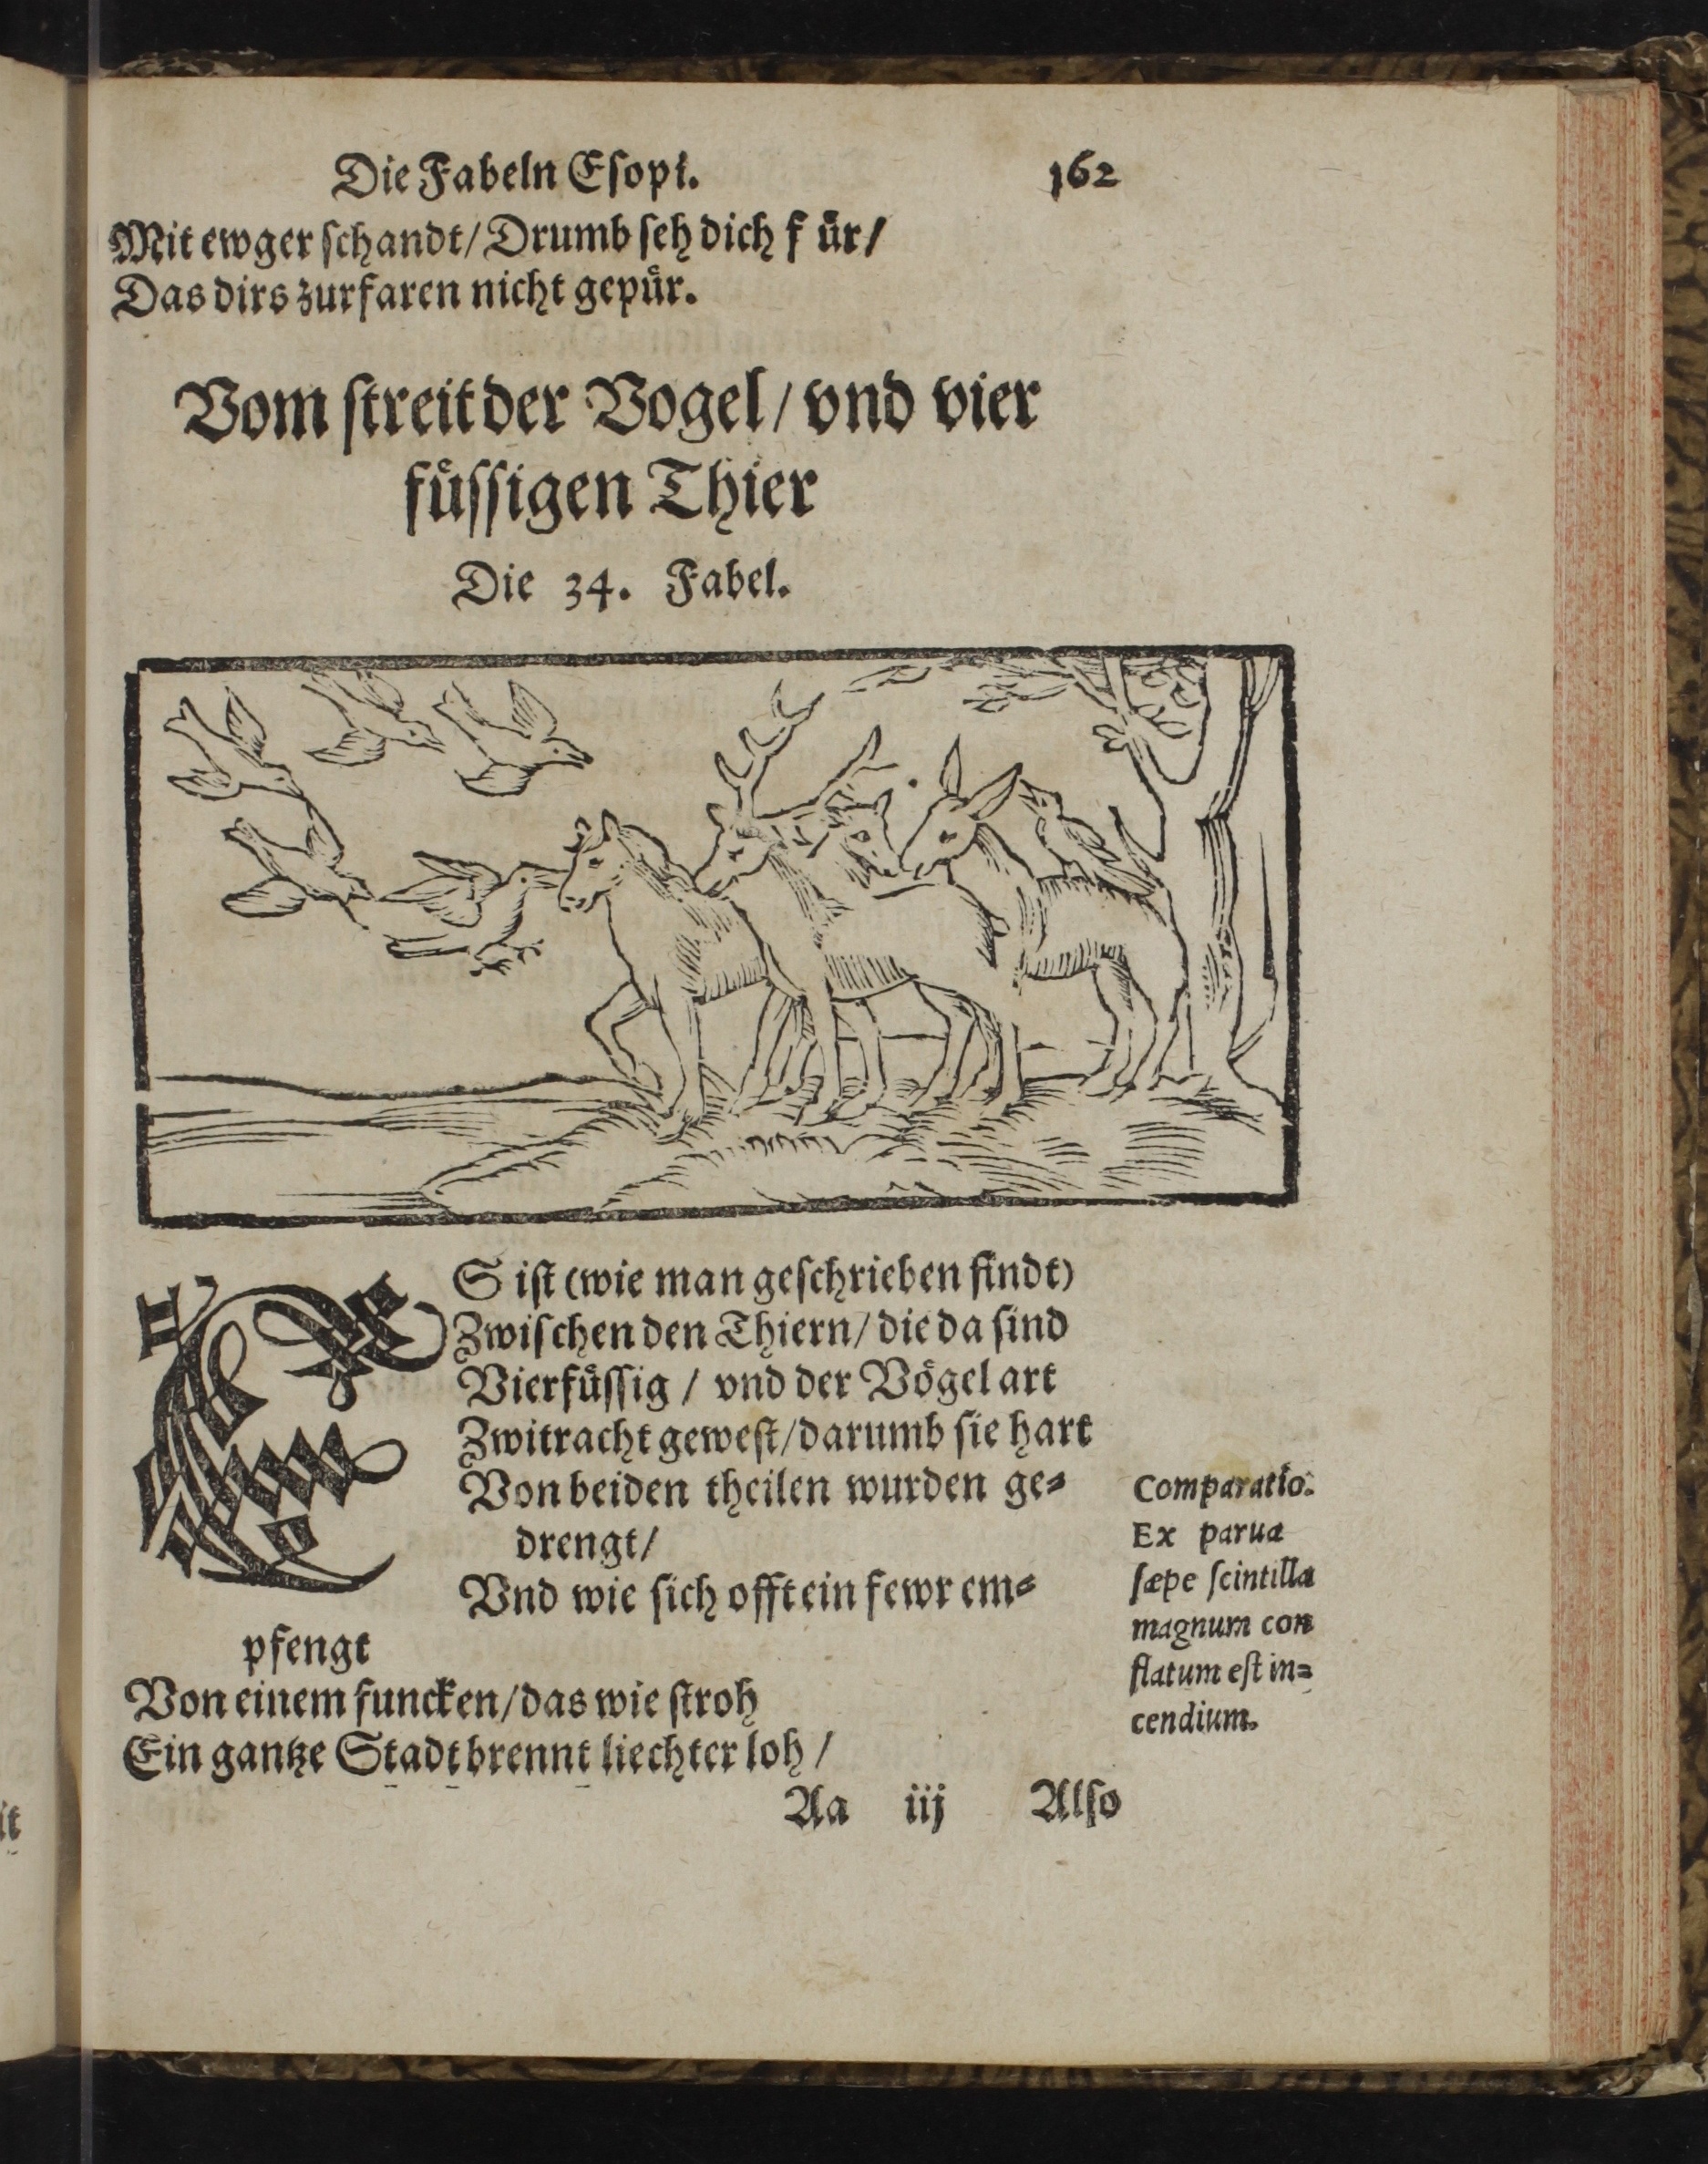 Die Fabeln Eſopi. 162
Mit ewger ſchandt/ Drumb ſeh dich fuͤr/
Das dirs zurfaren nicht gepuͤr.
Vom ſtreit der Vogel/ vnd vier
fuͤſſigen Thier
Die 34. Fabel.
ES iſt (wie man geſchrieben findt)
Zwiſchen den Thiern/ die da ſind
Vierfuͤſſig / vnd der Voͤgel art
Zwitracht geweſt/darumb ſie hart
Von beiden theilen wurden ge⸗
drengt/
Vnd wie ſich offt ein fewr em⸗
pfengt
Von einem funcken/das wie ſtroh
Ein gantze Stadt brennt liechter loh /
Comparatio.
Ex parua
ſæpe ſcintilla
magnum con
flatum eſt in⸗
cendium.
Aa iij Alſo